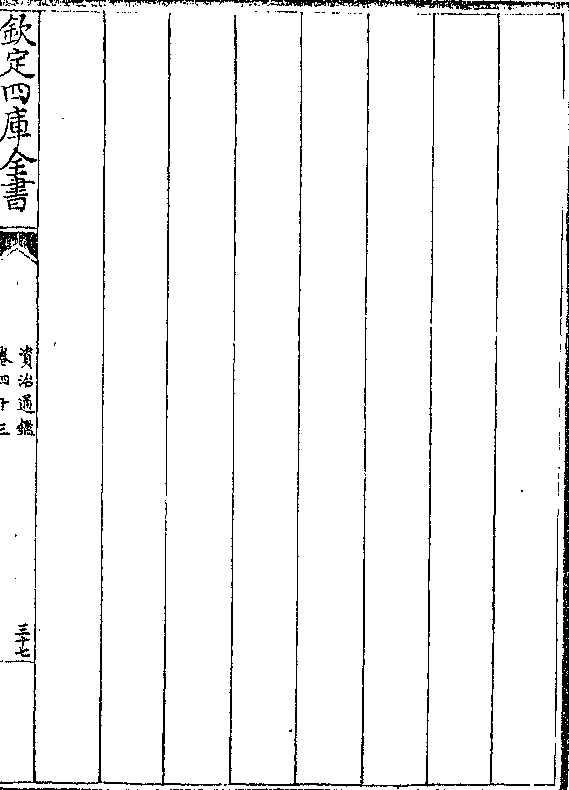 欽定四庫全書
資治通鑑
卷四十三
三十七